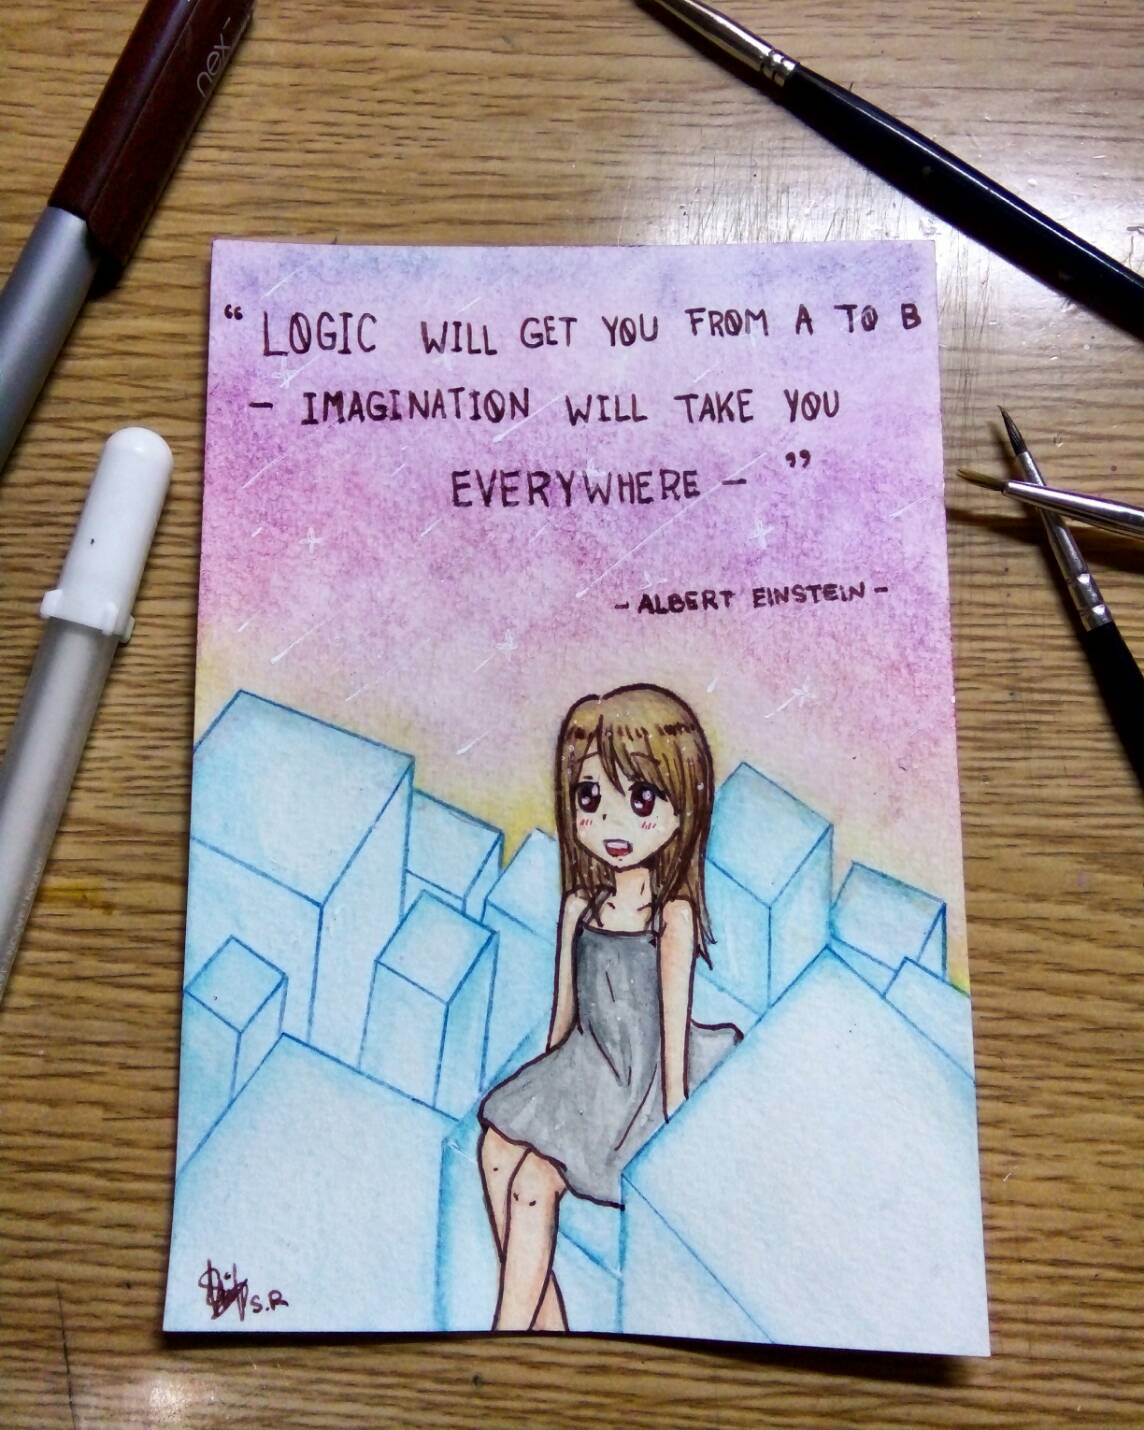 nex-
“ LOGIC WILL GET YOU FROM A TO B
- IMAGINATION WILL TAKE YOU
EVERYWHERE - ”
- ALBERT EINSTEIN -
S.R